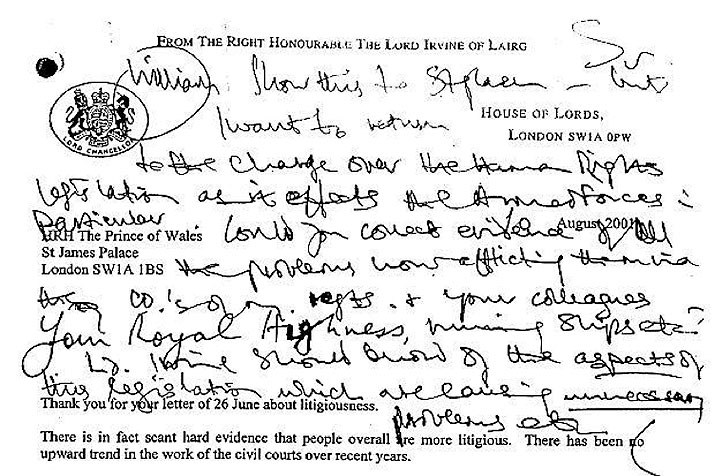 FROM THE RIGHT HONOURABLE THE LORD IRVINE OF LAIRG
William Show this to Stephen - but
I want to return
HOUSE OF LORDS,
LONDON SW1A 0PW
LORD CHANCELLOR
to the charge over the Human Rights
legislation as it effects the Armed Forces in
particular
August 2001
HRH The Prince of Wales
Could you collect evidence of all
St James Palace
London SW1A 1BS
the problems now afflicting them via
the CO.'s of my regts. & your colleagues
Your Royal Highness, running ships etc?
Ld. Irvine should know of the aspects of
this legislation which are causing unnecessary
problems etc
Thank you for your letter of 26 June about litigiousness.
There is in fact scant hard evidence that people overall are more litigious. There has been no
upward trend in the work of the civil courts over recent years.